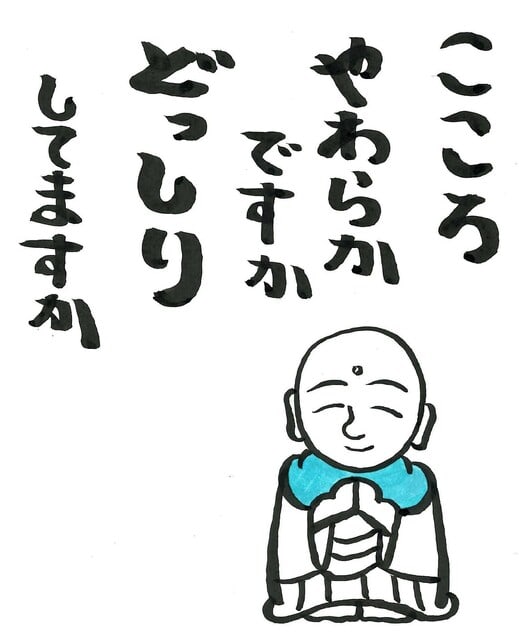 こころ
やわらか
ですか
どっしり
してますか